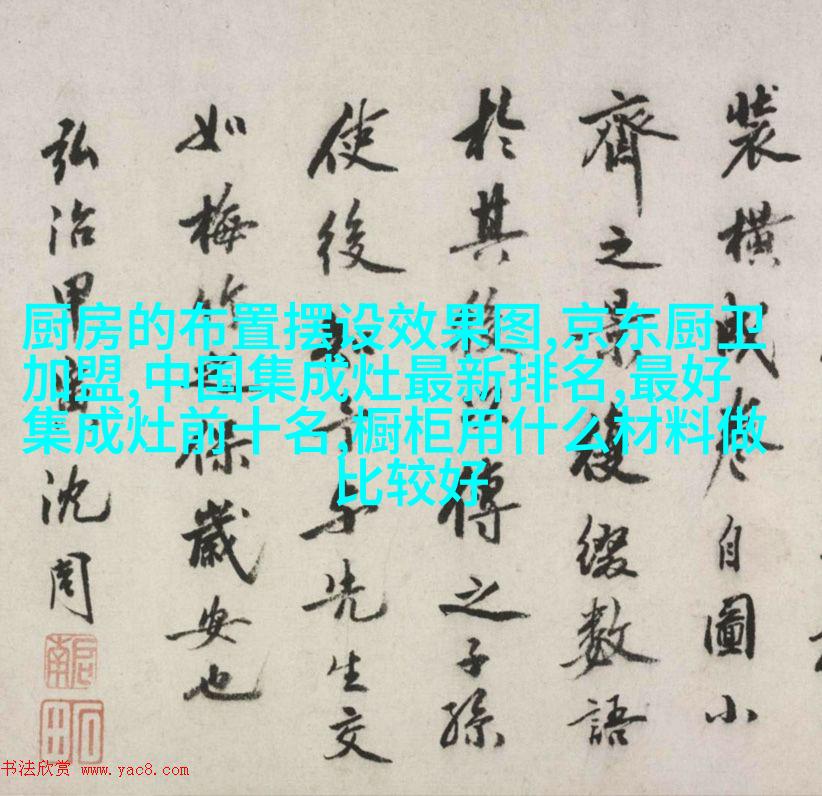 装横成卷自圖小
齊之景後缀數語
於其後以傳之子孫
使後知吾与先生交
如梅竹之保歲安也
弘治甲
沈周
厨房的布置摆设效果图,京东厨卫
加盟,中国集成灶最新排名,最好
集成灶前十名,橱柜用什么材料做
比较好
书法欣赏 www.yac8.com